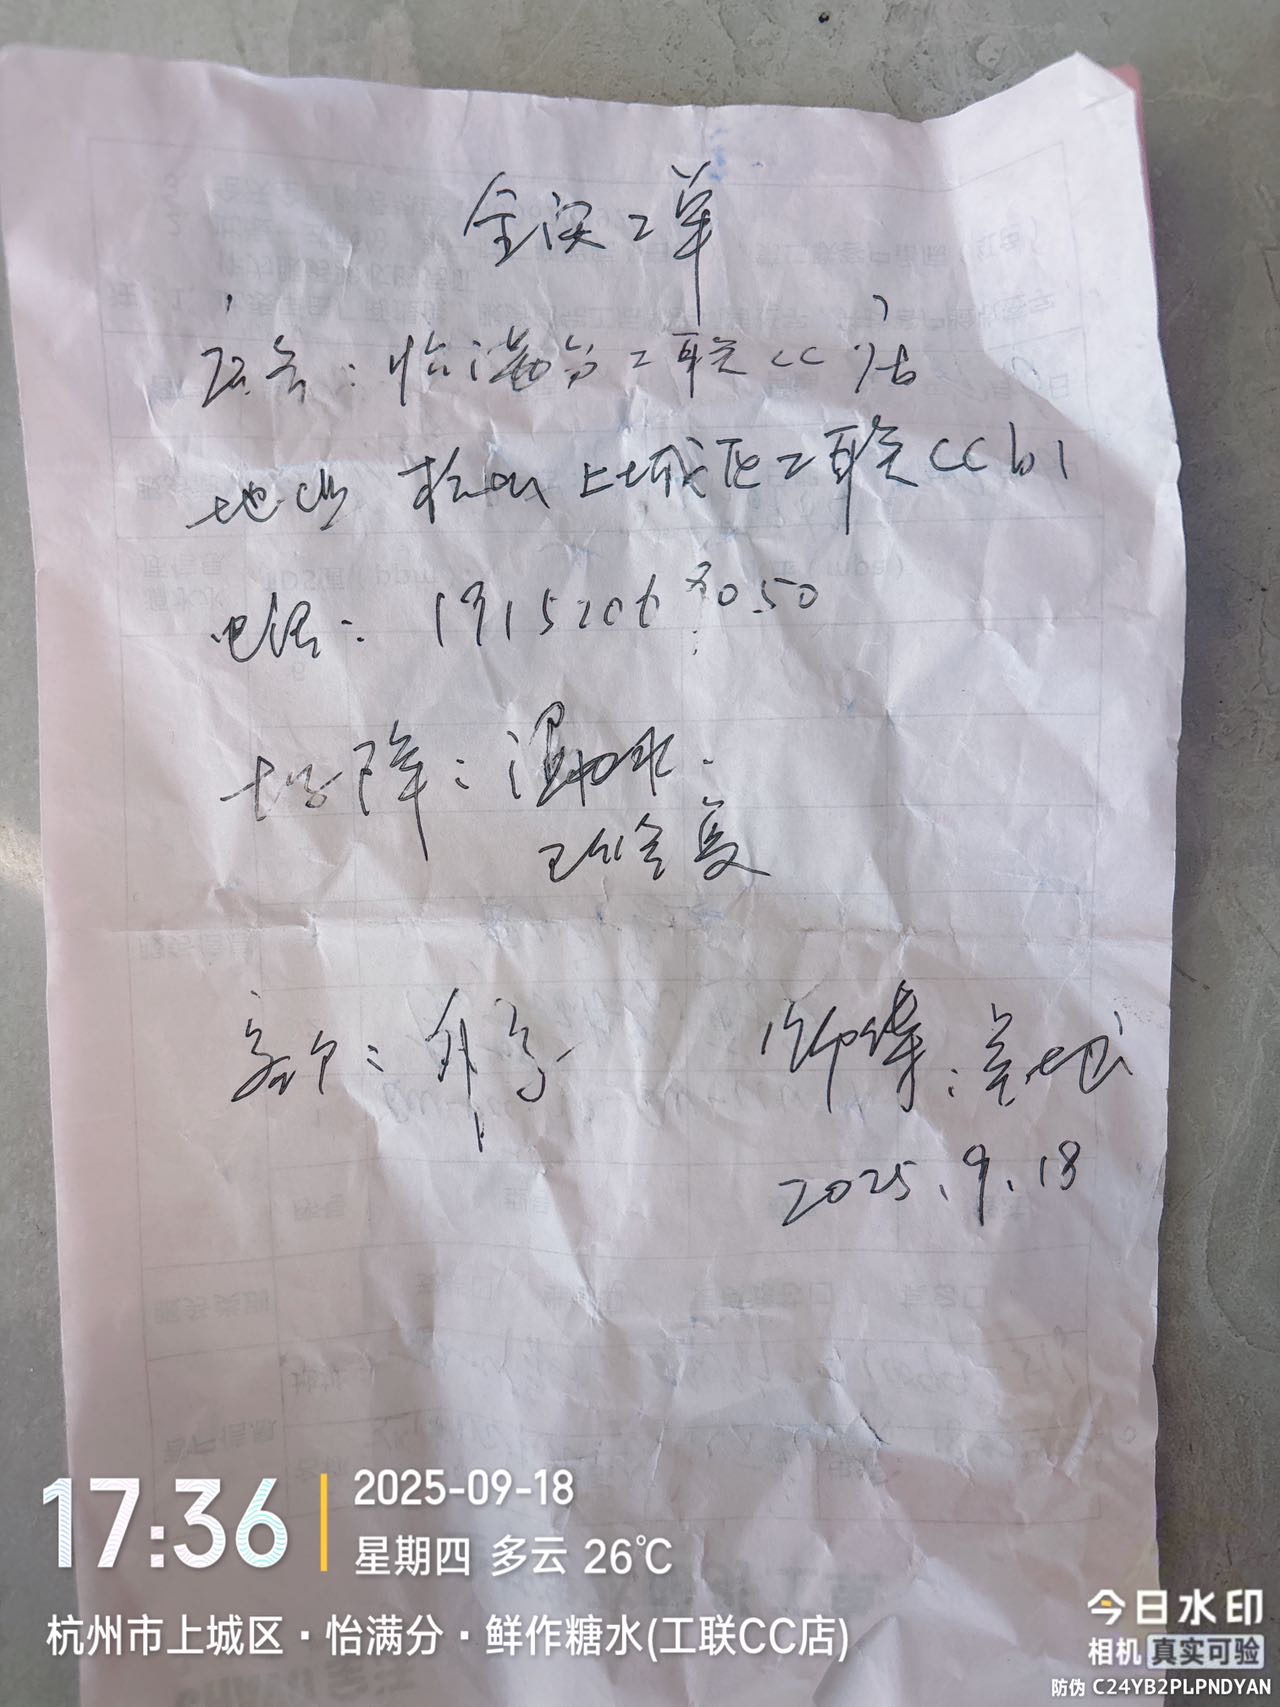 工单
店名：怡满分工联CC店
地址 杭州上城区工联CCb1
电话：
故障：漏水.
已修复
客户：
师傅：
2025.9.18
17:36
2025-09-18
星期四 多云 26℃
杭州市上城区·怡满分·鲜作糖水(工联CC店)
今日水印
相机 真实可验
防伪 C24YB2PLPNDYAN